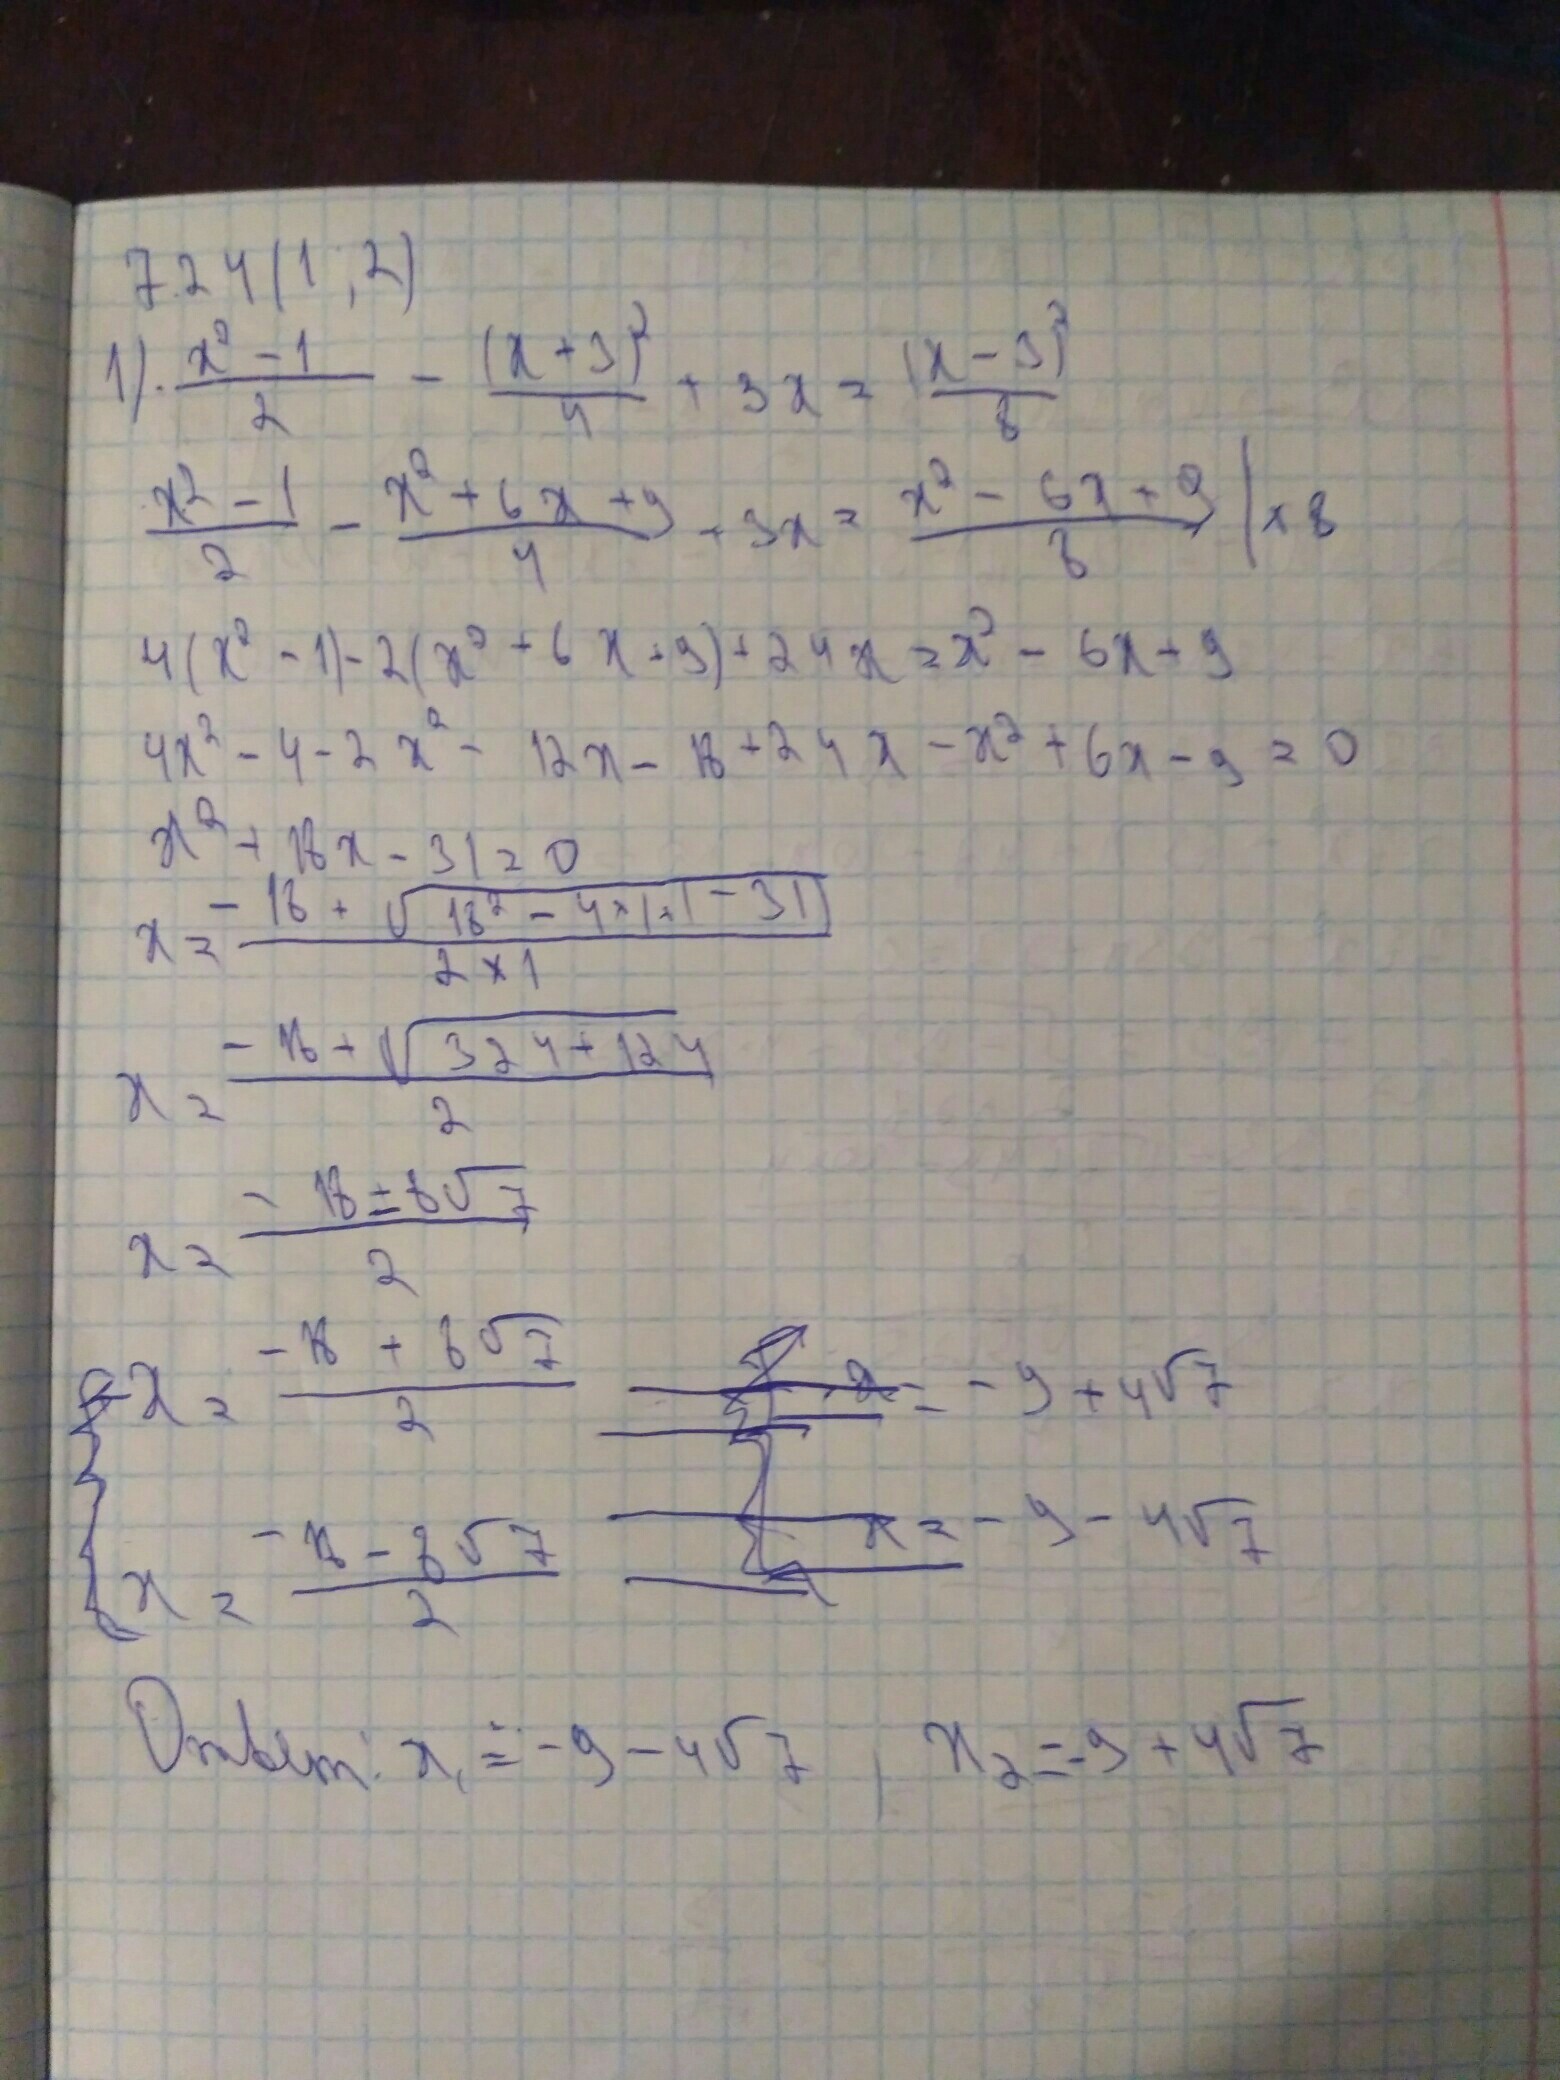 724(1,2)
1). (x² - 1)/2 - (x + 3)²/4 + 3x = (x - 3)²/8
(x² - 1)/2 - (x² + 6x + 9)/4 + 3x = (x² - 6x + 9)/8 | × 8
4(x² - 1) - 2(x² + 6x + 9) + 24x = x² - 6x + 9
4x² - 4 - 2x² - 12x - 18 + 24x - x² + 6x - 9 = 0
x² + 18x - 31 = 0
x = (-18 + √(18² - 4×1×1 - 31))/(2 × 1)
x = (-18 + √(324 + 124))/2
x = (-18 ± 8√7)/2
x = (-18 + 8√7)/2 x = -9 + 4√7
x = (-18 - 8√7)/2 x = -9 - 4√7
Ответ: x₁ = -9 - 4√7, x₂ = -9 + 4√7